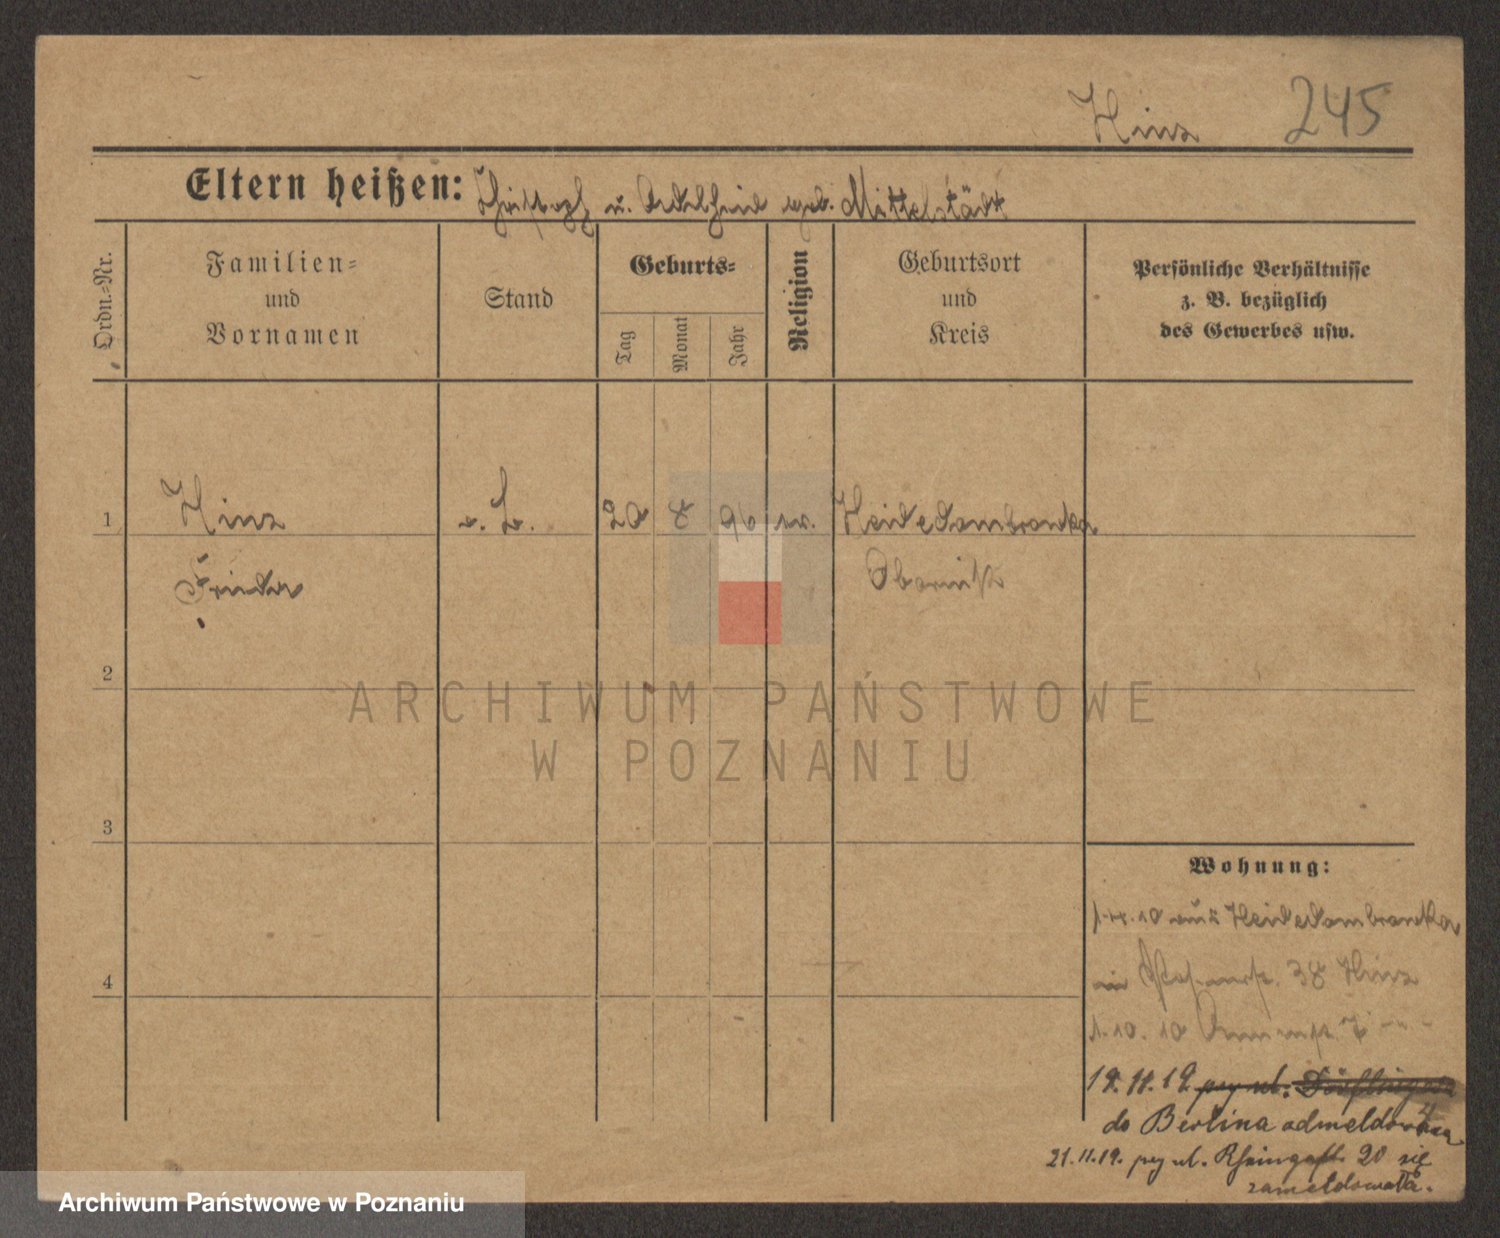 Hinz 245
Eltern heißen: Christoph u. Adelheid geb. Mittelstädt
Ordn.-Nr.
Familien-
und
Vornamen
Stand
Geburts-
Tag
Monat
Jahr
Religion
Geburtsort
und
Kreis
Persönliche Verhältnisse
z. B. bezüglich
des Gewerbes usw.
1 Hinz 20 8 96 ev. Heidedombrowka
Frieda Obornik
2
3
4
Wohnung:
10 aus Heidedombrowka
in 38 Hinz
1. 10. 10
19. 11. 19. przy ul.
do Berlina odmeldowana
21. 11. 19. przy ul. 20 się
zameldowała.
ARCHIWUM PAŃSTWOWE
W POZNANIU
Archiwum Państwowe w Poznaniu